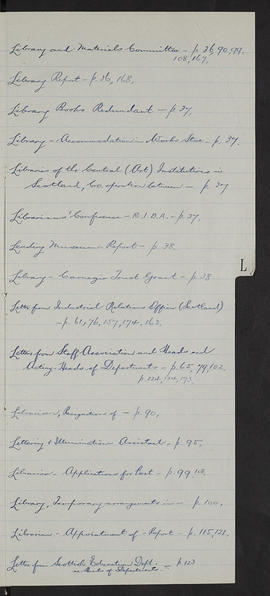 Library and Materials Committee - p. 36, 90, 99.
108, 167,
Library Report - p. 36, 168,
Library Books Redundant - p. 37,
Library - Accommodation in Works Store - p. 37.
Libraries of the Central (Art) Institutions in
Scotland, Co-operation between - p. 37
Librarians' Conference - R.I.B.A. - p. 37,
Lending Museum Report - p. 38
Library - Carnegie Trust Grant - p. 38
L
Letter from Industrial Relations Officer (Scotland)
- p. 61, 76, 157, 174, 163,
Letter from Staff Association and Heads and
Acting-Heads of Departments - p. 65, 79, 102,
Librarian, Resignation of - p. 90,
Lettering & Illumination Assistant - p. 95,
Librarian - Applications for Post - p. 99,
Library, Temporary arrangements in - p. 100,
Librarian - Appointment of - Report - p. 115, 121,
Letter from Scottish Education Dept. - p. 123